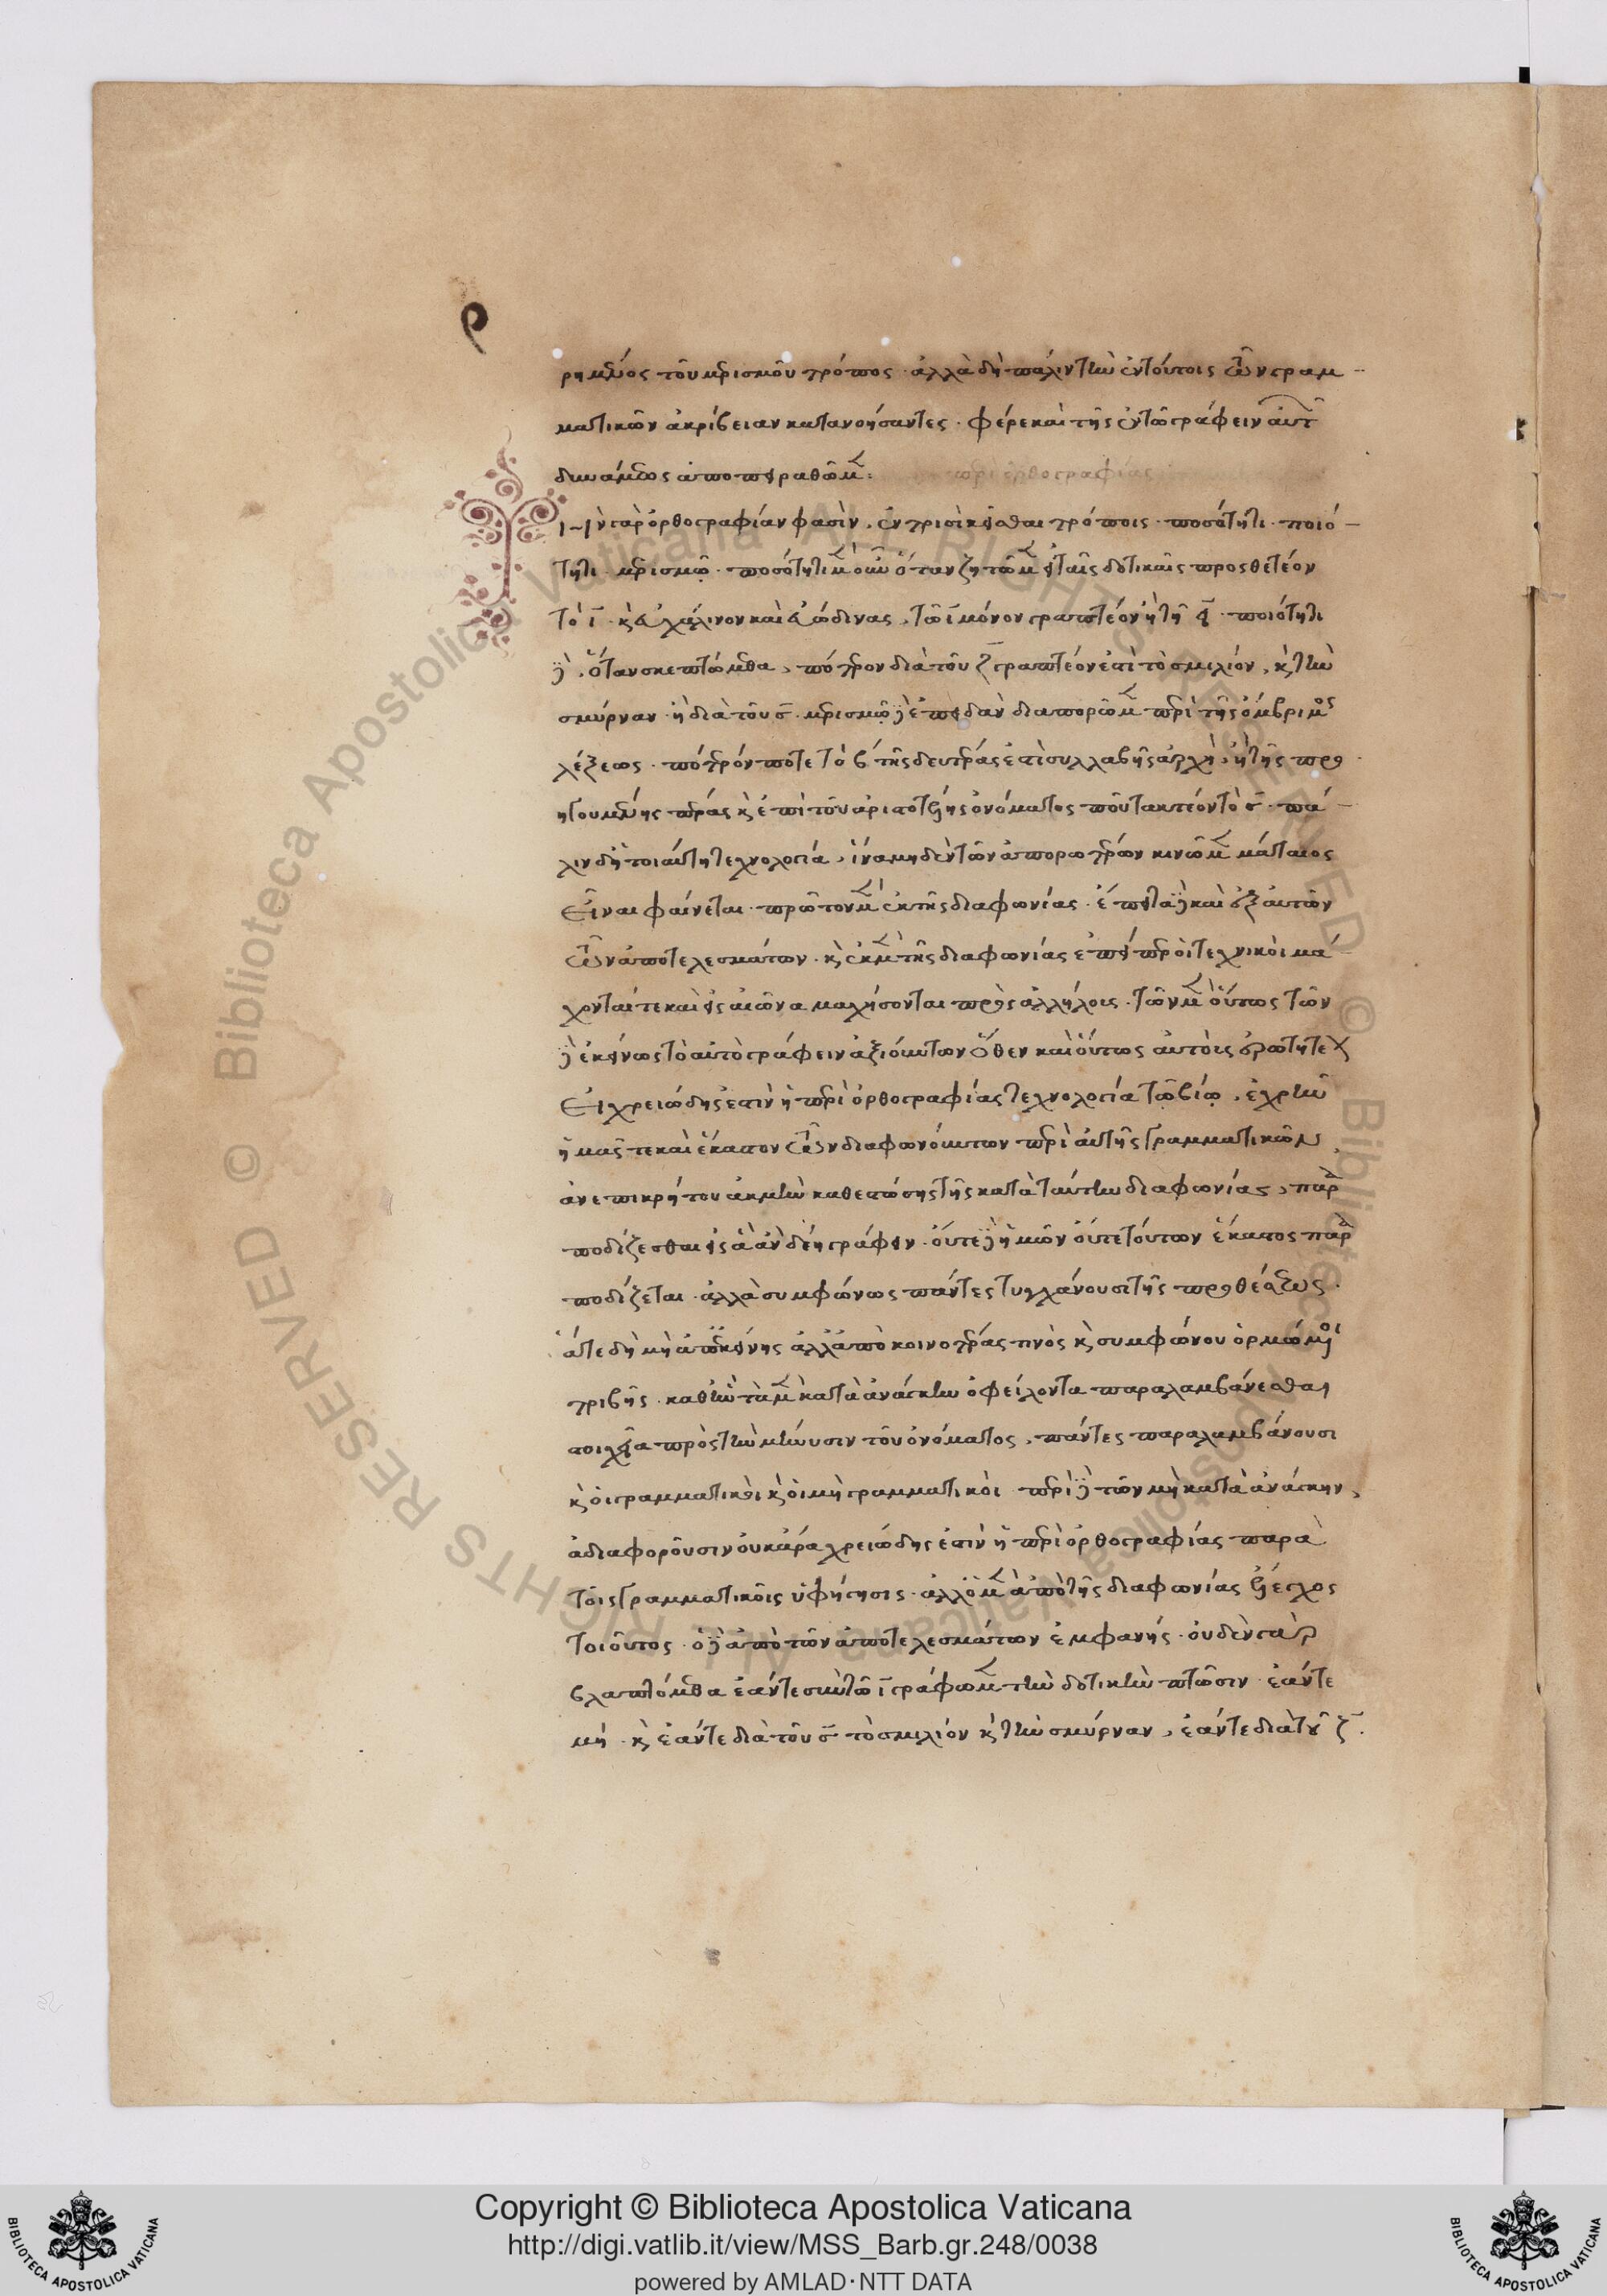 ρ
ρημένος τοῦ μερισμοῦ τρόπος · ἀλλὰ δὴ πάλιν τὴν ἐν τούτοις τῶν γραμ-
ματικῶν ἀκρίβειαν κατανοήσαντες · φέρε καὶ τῆς ἐν τῶ γράφειν αὐτ
δυνάμεως ἀποπειραθῶμεν:
περὶ ὀρθογραφίας
Τὴν γὰρ ὀρθογραφίαν φασὶν, ἐν τρισὶ κεῖσθαι τρόποις · ποσότητι · ποιό-
τητι · μερισμῷ · ποσότητι μὲν οὖν ὅταν ζητῶμεν εἰ ταῖς δοτικαῖς προσθετέον
τὸ ι · κὶ εὐχάλινον καὶ εὐώδινας, τῶ ι μόνον γραπτέον ἢ τῆ ει · ποιότητι
δὲ, ὅταν σκεπτώμεθα, πότερον διὰ τοῦ ζ γραπτέον ἐστὶ τὸ σμιλίον, κὶ τὴν
σμύρναν ἢ διὰ τοῦ σ · μερισμῷ δὲ ἐπειδὰν διαπορῶμεν περὶ τῆς ὄμβριμος
λέξεως · πότερόν ποτε τὸ β τῆς δευτέρας ἐστὶ συλλαβῆς ἀρχὴ, ἢ τῆς προ
ηγουμένης πέρας κὶ ἐπὶ τοῦ ἀριστοτέλης ὀνόματος ποῦ τακτέον τὸ σ · πά-
λιν δὴ τοιαύτη τεχνολογία, ἵνα μηδὲν τῶν ἀπορωτέρων κινῶμεν μάταιος
Εἶναι φαίνεται · πρῶτον μὲν ἐκ τῆς διαφωνίας · ἔπειτα δὲ καὶ ἐξ αὐτῶν
τῶν ἀποτελεσμάτων · κὶ ἐκ μὲν τῆς διαφωνίας ἐπείπερ οἱ τεχνικοὶ μά
χονταί τε καὶ εἰς αἰῶνα μαχήσονται πρὸς ἀλλήλοις · τῶν μὲν οὕτως τῶν
δὲ ἐκείνως τὸ αὐτὸ γράφειν ἀξιούντων ὅθεν καὶ οὕτως αὐτοὺς ἐρωτητέ
Εἰ χρειώδης ἐστὶν ἡ περὶ ὀρθογραφίας τεχνολογία τῷ βίῳ, ἐχρῆν
ἡμᾶς τε καὶ ἕκαστον τῶν διαφωνούντων περὶ αὐτῆς γραμματικῶν,
ἀνεπικρήτου ἀκμὴν καθεστώσης τῆς κατὰ ταύτην διαφωνίας, παρ
ποδίζεσθαι εἰς ἃ ἂν δέη γράφειν · οὔτε δὲ ἡμῶν οὔτε τούτων ἕκαστος παρ
ποδίζεται · ἀλλὰ συμφώνως πάντες τυγχάνουσι τῆς προθέσεως ·
ἅτε δὴ μὴ ἀπ' ἐκείνης ἀλλ' ἀπὸ κοινοτέρας τινὸς κὶ συμφώνου ὁρμώμενοι
τριβῆς · καθ' ἣν τὰ μὲν κατὰ ἀνάγκην ὀφείλοντα παραλαμβάνεσθαι
στοιχεῖα πρὸς τὴν μήνυσιν τοῦ ὀνόματος, πάντες παραλαμβάνουσι
κὶ οἱ γραμματικοὶ κὶ οἱ μὴ γραμματικοί περὶ δὲ τῶν μὴ κατὰ ἀνάγκην,
ἀδιαφοροῦσιν οὐκ ἄρα χρειώδης ἐστὶν ἡ περὶ ὀρθογραφίας παρὰ
τοῖς γραμματικοῖς ὑφήγησις · ἀλλ' ὁ μὲν ἀπὸ τῆς διαφωνίας ἔλεγχος
τοιοῦτος · ὁ δὲ ἀπὸ τῶν ἀποτελεσμάτων ἐμφανής · οὐδὲν γὰρ
βλαπτόμεθα ἐάν τε σὺν τῶ ι γράφωμεν τὴν δοτικὴν πτῶσιν · ἐάν τε
μή · κὶ ἐάν τε διὰ τοῦ σ τὸ σμιλίον κὶ τὴν σμύρναν, ἐάν τε διὰ τοῦ ζ.
Copyright © Biblioteca Apostolica Vaticana
http://digi.vatlib.it/view/MSS_Barb.gr.248/0038
powered by AMLAD·NTT DATA